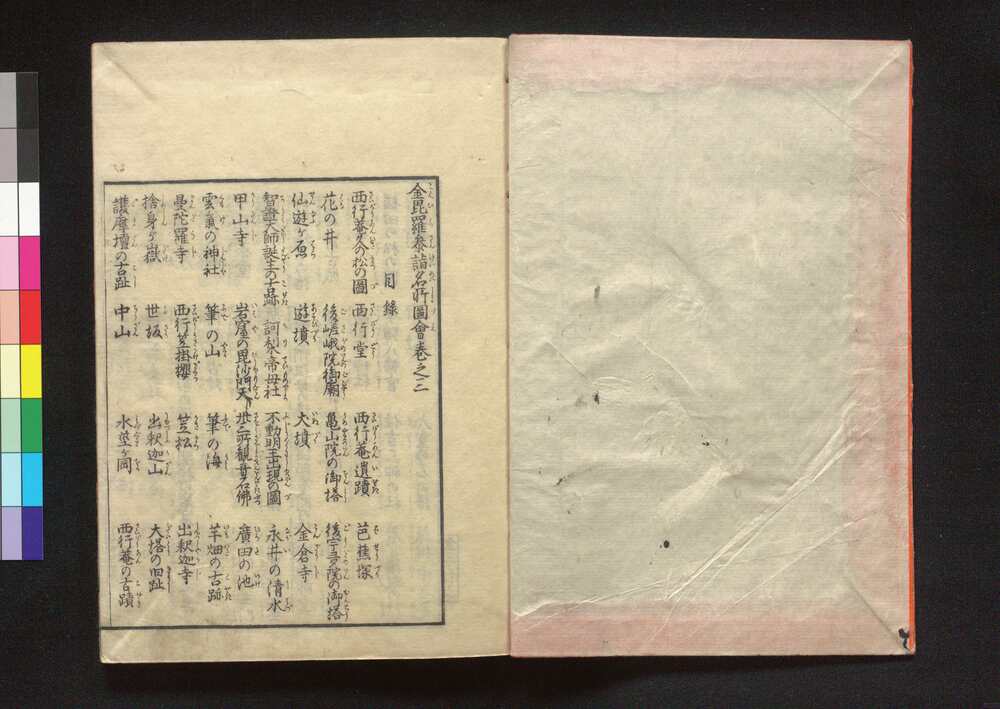 金毘羅參詣名所圖會卷之三
目錄
西行菴久の松の圖 西行堂 西行菴遺蹟 芭蕉塚
花の井 後嵯峨院御廟 亀山院の御塔 後宇多院の御塔
仙遊ヶ原 遊墳 犬墳 金倉寺
智證大師誕生の古跡 訶梨帝母社 不動明王出現の圖 永井の清水
甲山寺 岩窟の毘沙門天 石佛 廣田の池
雲氣の神社 筆の山 筆の海 芋畑の古跡
曼陀羅寺 西行笠掛櫻 笠松 出釈迦寺
捨身ヶ嶽 世坂 出釈迦山 大塔の旧趾
護摩壇の古趾 中山 水莖ヶ岡 西行菴の古蹟